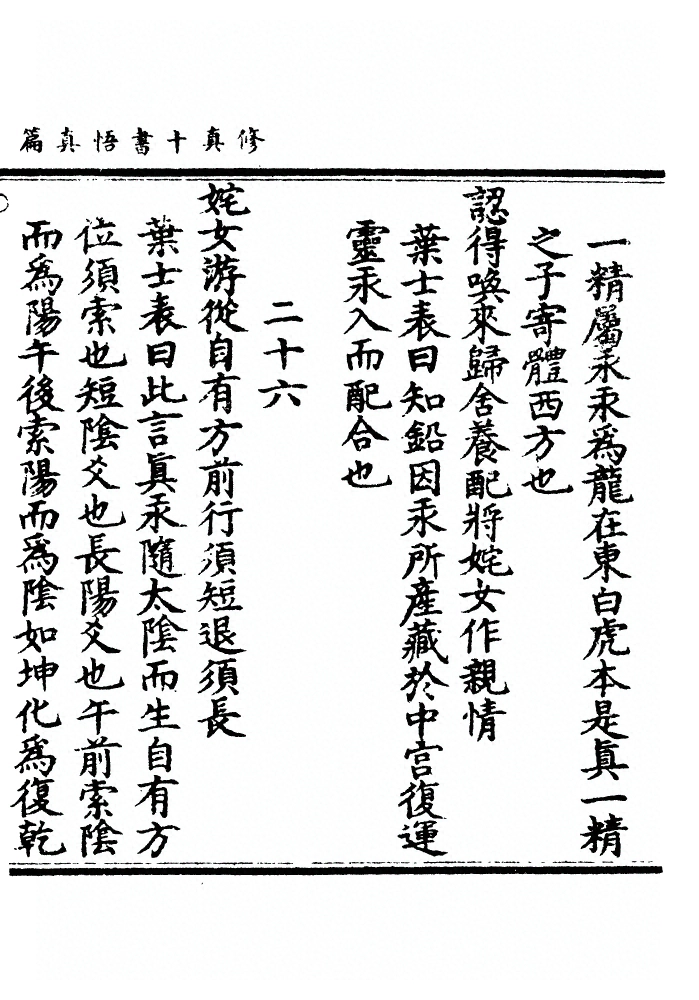 修真十書悟真篇
一精屬汞汞爲龍在東白虎本是眞一精
之子寄體西方也
認得喚來歸舍養配將姹女作親情
葉士表曰知鉛因汞所產藏於中宫復運
靈汞入而配合也
二十六
姹女游從自有方前行須短退須長
葉士表曰此言眞汞隨太陰而生自有方
位須索也短陰爻也長陽爻也午前索陰
而爲陽午後索陽而爲陰如坤化爲復乾